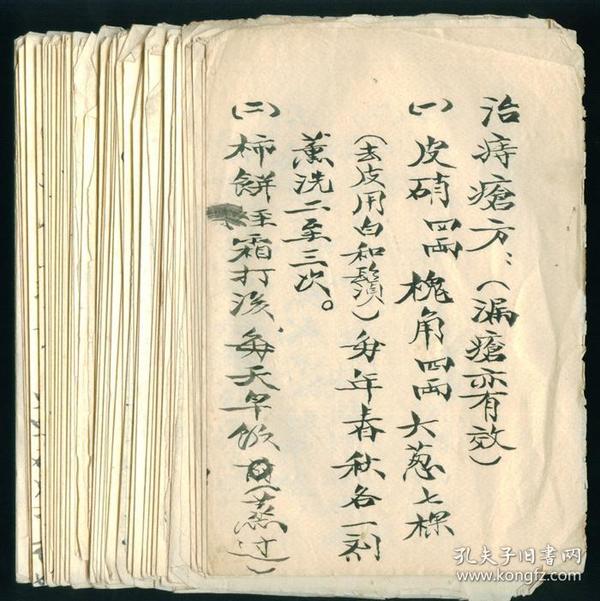 治痔瘡方：（漏瘡亦有效）
(一) 皮硝四兩 槐角四兩 大葱七棵
（去皮用白和鬚）每年春秋各一剂
薰洗二至三次。
(二) 柿餅 霜打後，每天早飯 （蒸过）
孔夫子旧书网
www.kongfz.com